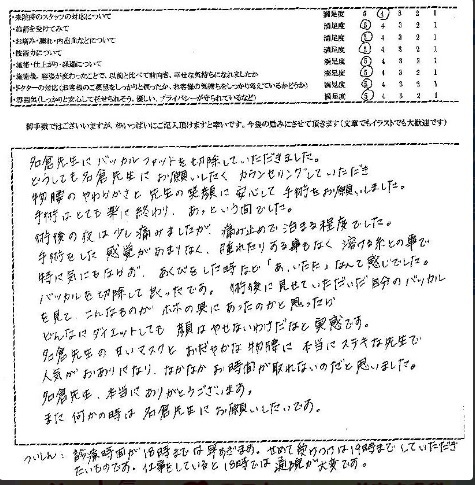 ・来院時のスタッフの対応について 満足度 5 4 3 2 1
・施術を受けてみて 満足度 5 4 3 2 1
・お痛み・腫れ・内出血などについて 満足度 5 4 3 2 1
・技術力について 満足度 5 4 3 2 1
満足度 5 4 3 2 1
満足度 5 4 3 2 1
満足度 5 4 3 2 1
満足度 5 4 3 2 1
御手数ではございますが、せいいっぱいにご記入頂けますと幸いです。今後の励みにさせて頂きます(文章でもイラストでも大歓迎です)
名倉先生にバッカルファットを切除していただきました。
どうしても名倉先生にお願いしたくカウンセリングしていただき
物腰のやわらかさと先生の笑顔に安心して手術をお願いしました。
手術はとても楽に終わり、あっという間でした。
術後の夜は少し痛みましたが、痛み止めで治まる程度でした。
手術をした感覚があまりなく、腫れたりする事もなく溶ける糸との事で
特に気にもならず、あくびをした時など「あ、いたた」なんて感じでした。
バッカルを切除して良かったです。術後に見せていただいた自分のバッカル
を見て、こんなものがホホの奥にあったのかと思ったけど
どんなにダイエットしても顔はやせないわけだなと実感です。
名倉先生の甘いマスクとおだやかな物腰に本当にステキな先生で
人気がおありになり、なかなかお時間が取れないのだと思いました。
名倉先生、本当にありがとうございます。
また何かの時は名倉先生にお願いしたいです。
ついしん: 診療時間が18時までは早すぎます。せめて受けつけは19時までしていただき
たいものです。仕事をしていると18時では通院が大変です。